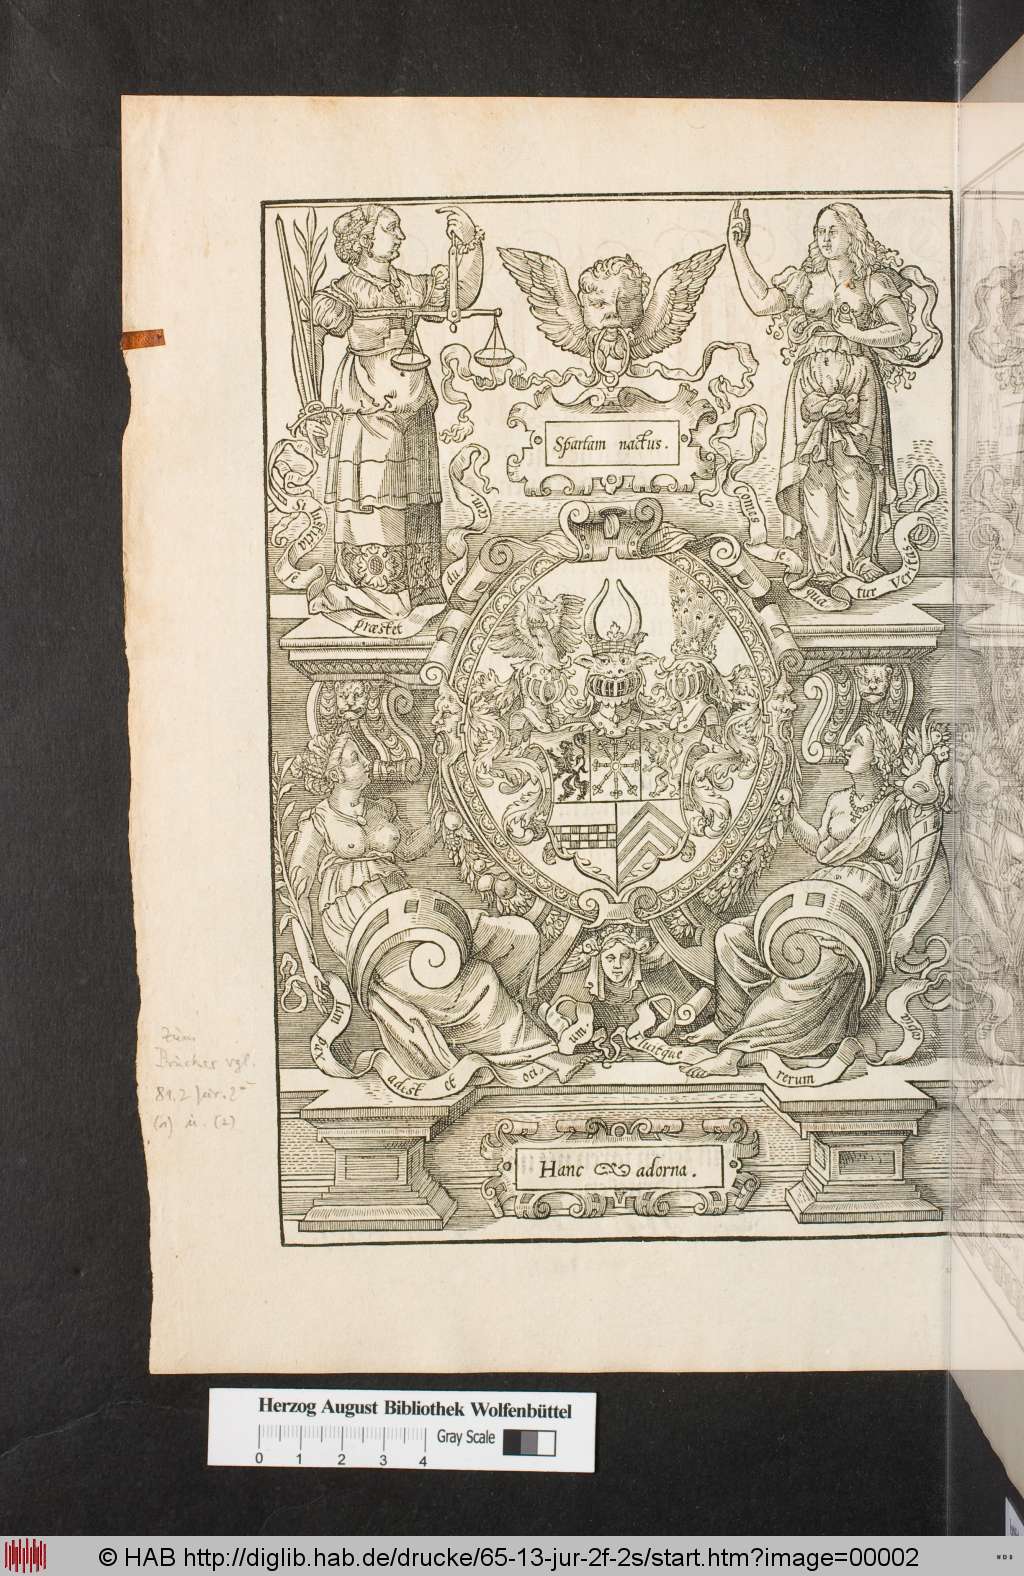 Spartam nactus.
Iustitia
se
præstet
ducem,
comes
se-
qua
tur Veritas
Iam Pax
adest et
oci-
um,
Fluatque
rerum
copia
Zum
Drucker vgl.
81.2 Jur. 2°
(1) u. (2)
Hanc adorna.
Herzog August Bibliothek Wolfenbüttel
Gray Scale
0 1 2 3 4
© HAB http://diglib.hab.de/drucke/65-13-jur-2f-2s/start.htm?image=00002